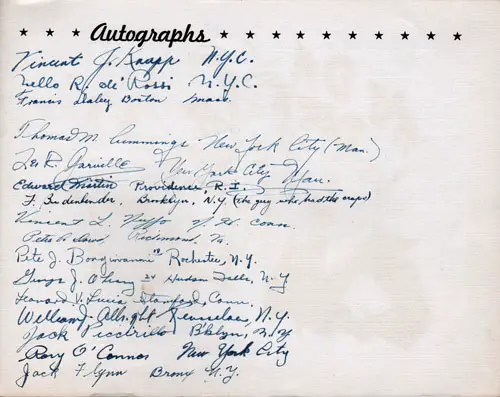 Autographs
Vincent J. Knapp N.Y.C.
Nello R. de' Rossi N.Y.C.
Francis Daley Boston Mass.
Thomas M. Cummings New York City (Man.)
Leo R. New York City Man.
Edward Martin Providence R.I.
F. Brooklyn, N.Y. (the guy who had the craps)
Vincent L. Nuffo N. H. Conn.
Pete Richmond, Va.
Pete J. Bongiovanni Rochester, N.Y.
George J. O'Leary Hudson Falls, N.Y.
Leonard V. Lucia Stamford, Conn.
William J. Albright Rensselaer, N.Y.
Jack Piccirillo B'klyn, N.Y.
Rory O'Connor New York City
Jack Flynn Bronx N.Y.